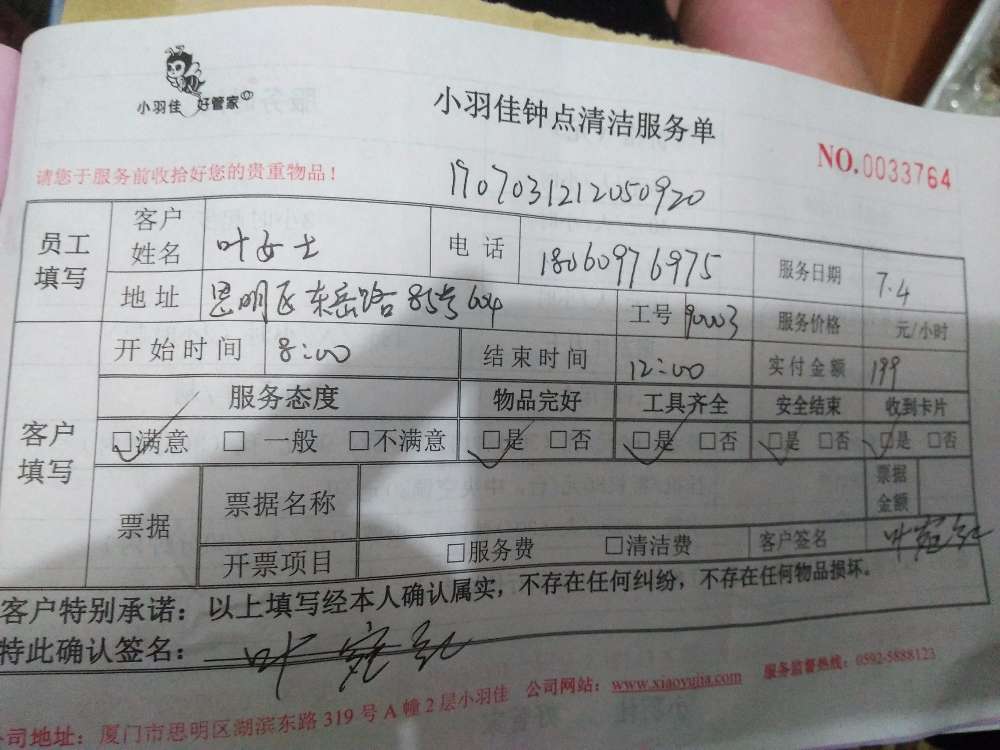 小羽佳 好管家
小羽佳钟点清洁服务单
NO.0033764
请您于服务前收拾好您的贵重物品！
1707031212050920
员工填写 客户姓名 叶女士 电话 18060976975 服务日期 7.4
地址 思明区东岳路85号604 工号 90003 服务价格 元/小时
开始时间 8:00 结束时间 12:00 实付金额 199
客户填写 服务态度 物品完好 工具齐全 安全结束 收到卡片
□满意 □一般 □不满意 □是 □否 □是 □否 □是 □否 □是 □否
票据 票据名称 票据金额
开票项目 □服务费 □清洁费 客户签名 叶
客户特别承诺：以上填写经本人确认属实，不存在任何纠纷，不存在任何物品损坏。
特此确认签名：叶
司地址：厦门市思明区湖滨东路319号A幢2层小羽佳 公司网站：www.xiaoyujia.com 服务监督热线：0592-5888123